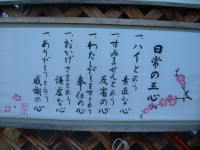 日常の五心
一、ハイという 素直な心
一、すみませんという 反省の心
一、わたしがしますという 奉仕の心
一、おかげさまという 謙虚な心
一、ありがとうという 感謝の心